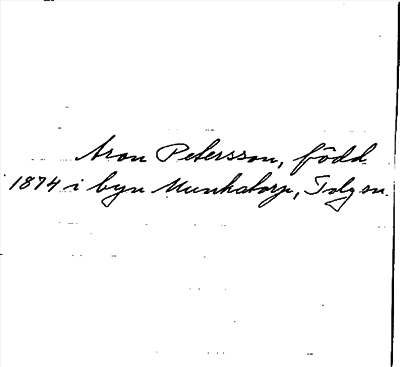 Aron Petersson, född
1874 i byn Munkatorp, Tolg sn.